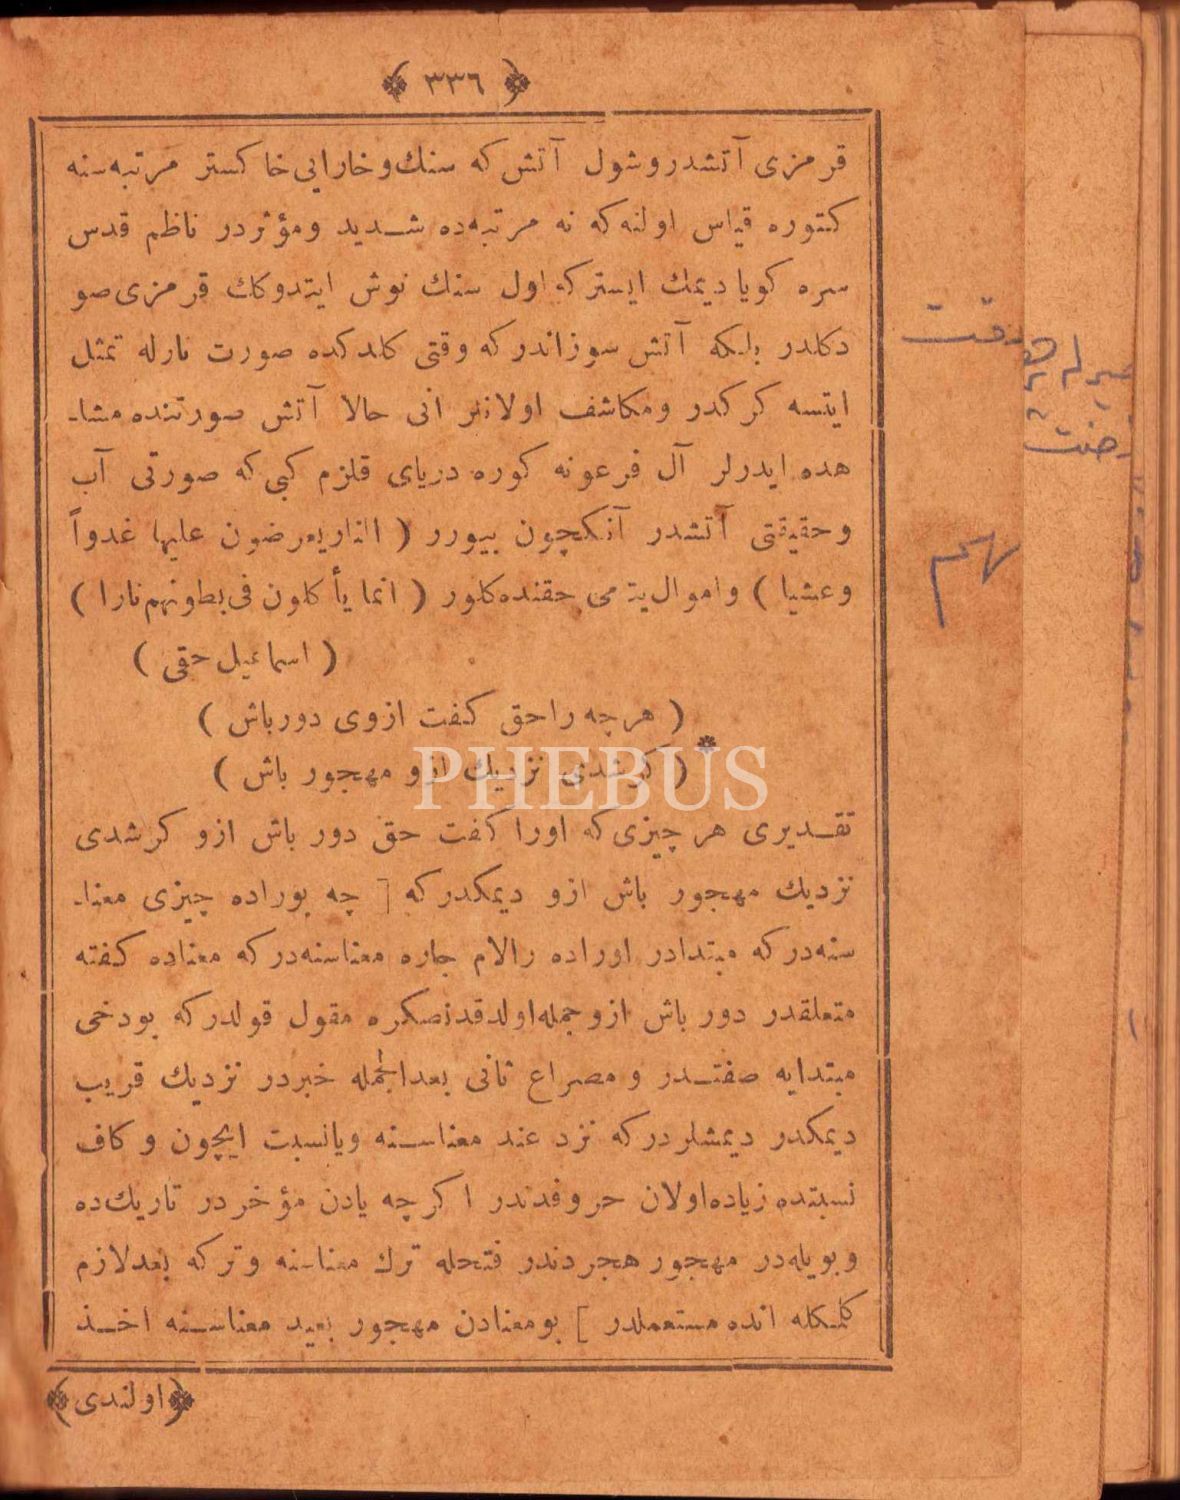 ﴿ ٣٣٦ ﴾
قرمزى آتشدر وشول آتش كه سنك وخارايى خاكستر مرتبه سنه
كتوره قياس اولنه كه نه مرتبه ده شديد ومؤثردر ناظم قدس
سره كويا ديمك ايستر كه اول سنك نوش ايتدوكك قرمزى صو
دكلدر بلكه آتش سوزاندر كه وقتى كلدكده صورت نارله تمثل
ايتسه كركدر ومكاشف اولانلر انى حالا آتش صورتنده مشا۔
هده ايدرلر آل فرعونه كوره درياى قلزم كبى كه صورتى آب
وحقيقتى آتشدر آنكچون بيورر ( النار يعرضون عليها غدواً
وعشيا ) واموال يتمى حقنده كلور ( انما يأكلون فى بطونهم نارا )
( اسماعيل حقى )
( هرچه را حق كفت ازوى دورباش )
*
( كرشدى نزديك ازو مهجور باش )
PHEBUS
تقديرى هر چيزى كه اورا كفت حق دور باش ازو كرشدى
نزديك مهجور باش ازو ديمكدر كه [ چه بوراده چيزى معنا۔
سنه در كه مبتدادر اوراده را لام جاره معناسنه در كه معناده كفته
متعلقدر دور باش ازو جمله اولدقدنصكره مقول قولدر كه بودخى
مبتدايه صفتدر و مصراع ثانى بعدالجمله خبردر نزديك قريب
ديمكدر ديمشلردر كه نزد عند معناسنه ويا نسبت ايچون وكاف
نسبتده زياده اولان حروفدندر اكرچه يادن مؤخردر تاريك ده
وبويله در مهجور هجر دندر فتحله ترك معناسنه وترکه بعد لازم
كلمكله انده مستعملدر ] بومعنادن مهجور بعيد معناسنه اخذ
﴿ اولندى ﴾
دقت